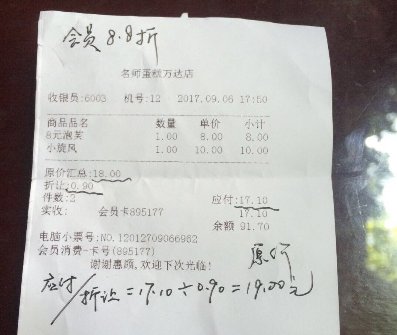 会员8.8折
名师蛋糕万达店
收银员:6003 机号:12 2017.09.06 17:50
商品品名 数量 单价 小计
8元泡芙 1.00 8.00 8.00
小旋风 1.00 10.00 10.00
原价汇总:18.00
折让:0.90
件数:2 应付:17.10
实收: 会员卡895177 17.10
余额 91.70
电脑小票号:NO.12012709066962
会员消费-卡号(895177)
谢谢惠顾,欢迎下次光临!
原价
应付/折让=17.10÷0.90=19.00元